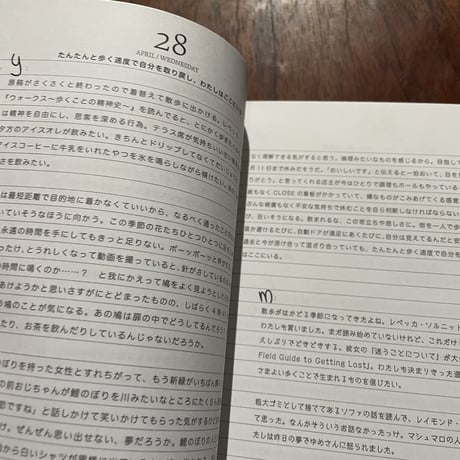 28
APRIL / WEDNESDAY
たんたんと歩く速度で自分を取り戻し、わたしはここにいる
y
原稿がさくさくと終わったので着替えて散歩に出かける。レベッカ
『ウォークス〜歩くことの精神史〜』を読んでると、とにかく歩きたく
は精神を自由にし、思索を深める行為。テラス席が気持ちいい
夕方のアイスオレが飲みたい。きちんとドリップしてなくて
アイスコーヒーに牛乳をいれたやつを氷を鳴らしながら傾けたい。
さを飲みたい。
は最短距離で目的地に着かなくていいから、なるべく通ったこと
いていそうなほうに向かう。この季節の花たちひとつひとつに
永遠の時間を手にしてもきっと足りない。ポーッポーッと声が
ったけ、とうれしくなって動画を撮っていると、針がさしているの
時間に鳴くのか……？ と我にかえって鳩をよく見ようとした
あけようかと思いさすがにとどまったものの、しばらく
う鳩のことが気になる。あの鳩は扉の中でどうしてるんだろう
たり、お茶を飲んだりしているんじゃないだろうか。
のぼりを持った女性とすれちがって、もう新緑がいちばん
の前おじちゃんが鯉のぼりを川みたいなところにたくさん
節ですね」と話しかけて笑いかけてもらった気がするけど
け。ぜんぜん思い出せない、夢だろうか。鯉の
由から白いシャツが
なく理解できる気がすると思う。倫理みたいなものを感じるから。目指し
月11日まで休みだそうだ。「おいしいです」と伝えると一拍おいて、目を
ちがとう」と言ってくれる店主が今はひとりで調理もホールもやっている
もなくCLOSEの看板がかかっていて、嫌なものがこみあげてくる感覚
んな権威もない不安な気持ちで休むことを自ら判断しなければならない
び、狂いそうになる。飲まれるな、この苛立ちや悲しさに。街を一人で歩
びかけてくる、自動ドアが満足にあくたびに、自分は見えてるんだと安
過去と今が溶け合って混ざり合っていても、たんたんと歩く速度で自分
はここにいる。
m
散歩がはかどる季節になってきたよね。レベッカ・ソルニット
わたしも買いました。まだ読み始めていないけれど、これだけ
えしぶりでどきどきする。彼女の『迷うことについて』が大
Field Guide to Getting Lost』。わたしも決まりきった道
さまよい歩くことで生まれるものを信じたい。
粗大ゴミとして捨ててあるソファの話を読んで、レイモンド・
て思った。なんかそういうお話なかったっけ。マシュマロの人
たしは昨日の夢でゆめさんに怒られました。